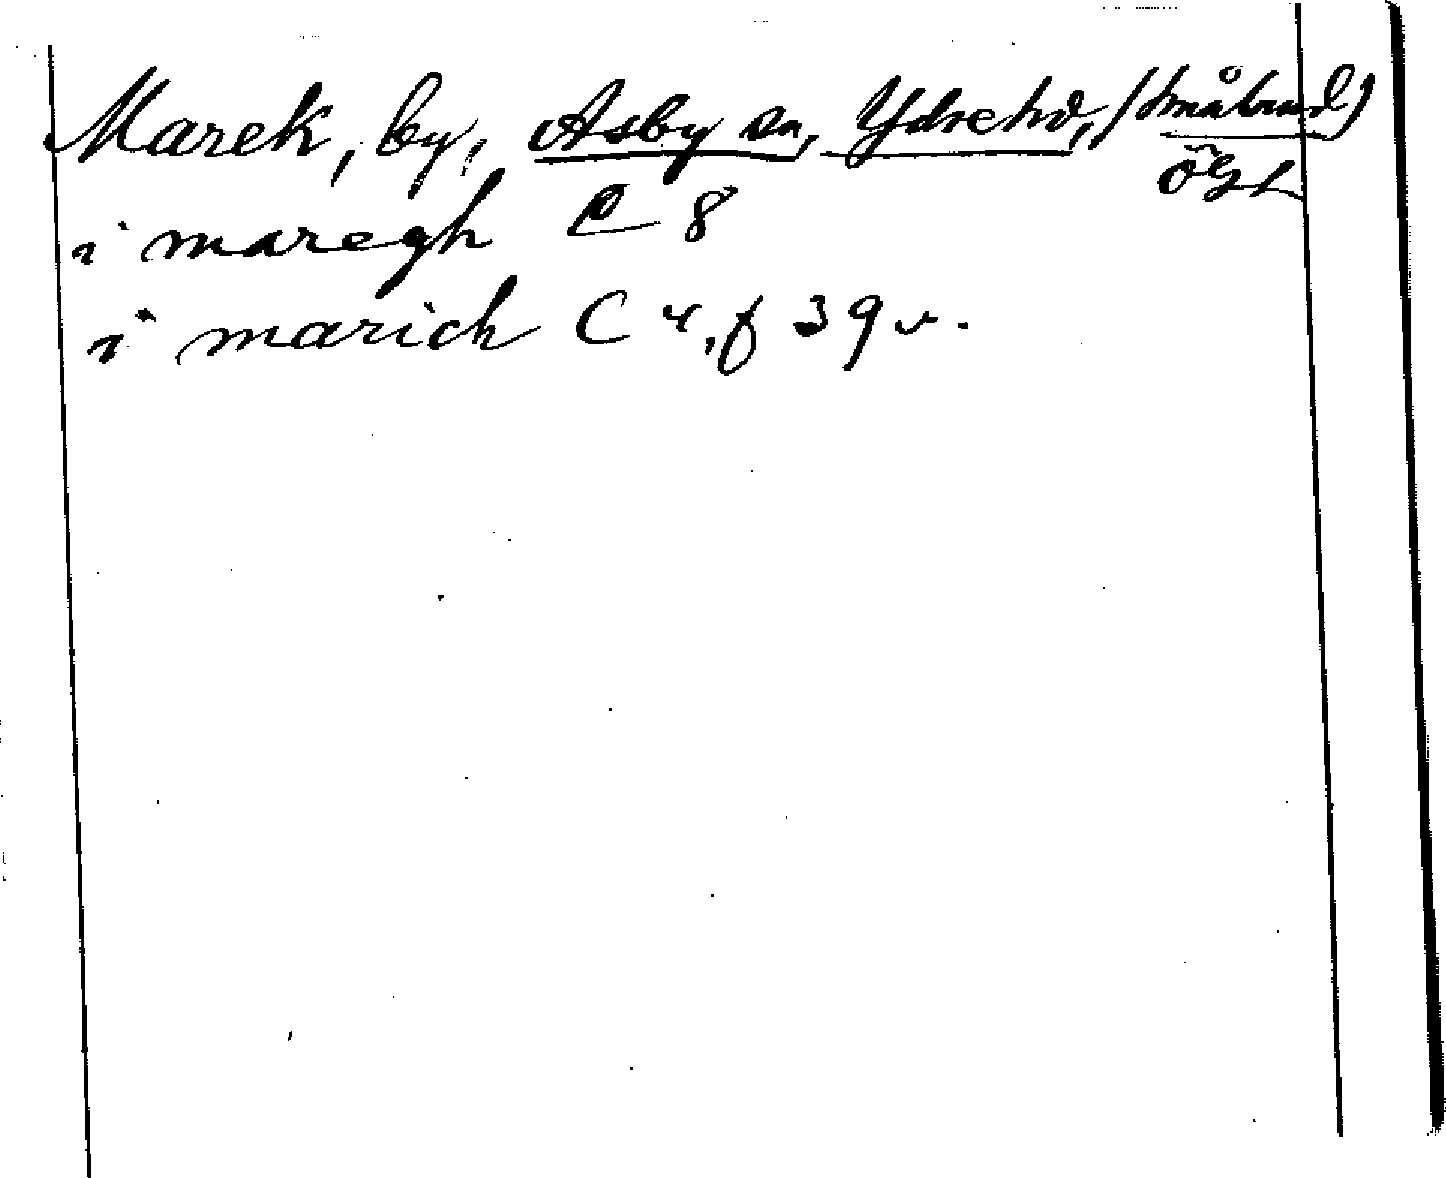 Marek, by, Asby sn, Ydrehd, (Småland)
Ögl
i maregh C 8
i marich C 4, f 39 v.